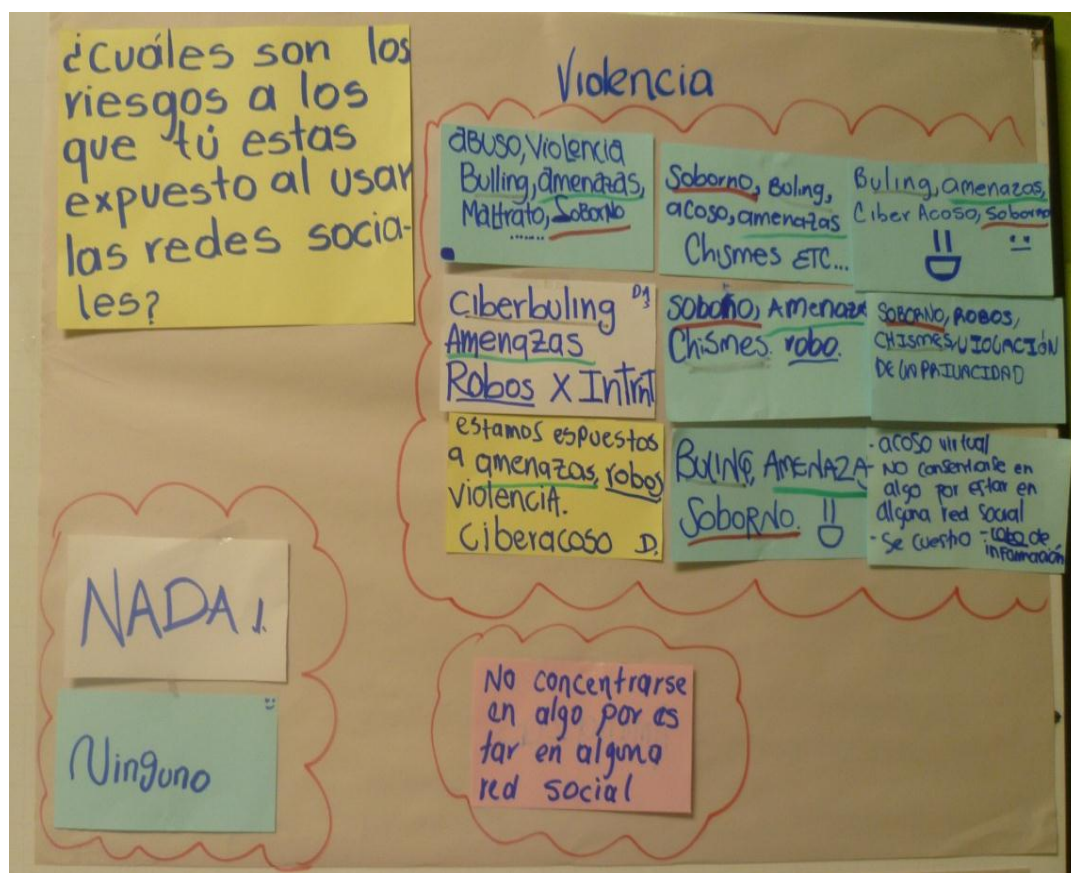 ¿Cuáles son los
riesgos a los
que tú estas
expuesto al usar
las redes socia-
les?
Violencia
aBUSO, Violencia
Bulling, amenazas,
Maltrato, SoBorno
......
Soborno, Buling,
acoso, amenazas
Chismes ETC...
Buling, amenazas,
Ciber Acoso, soborno
Ciberbuling
Amenazas
Robos X Intrnt
Soborno, Amenaza
Chismes. robo.
SOBORNO, ROBOS,
CHISMES, VIOLACIÓN
DE LA PRIVACIDAD
estamos espuestos
a amenazas, robos
violencia.
Ciberacoso D.
BULING, AMENAZA
SoboRNO.
- acoso virtual
- NO consentrarse en
algo por estar en
alguna red social
- Se cuestro - robo de
información
NADA!.
Ninguno
No concentrarse
en algo por es
tar en alguna
red social